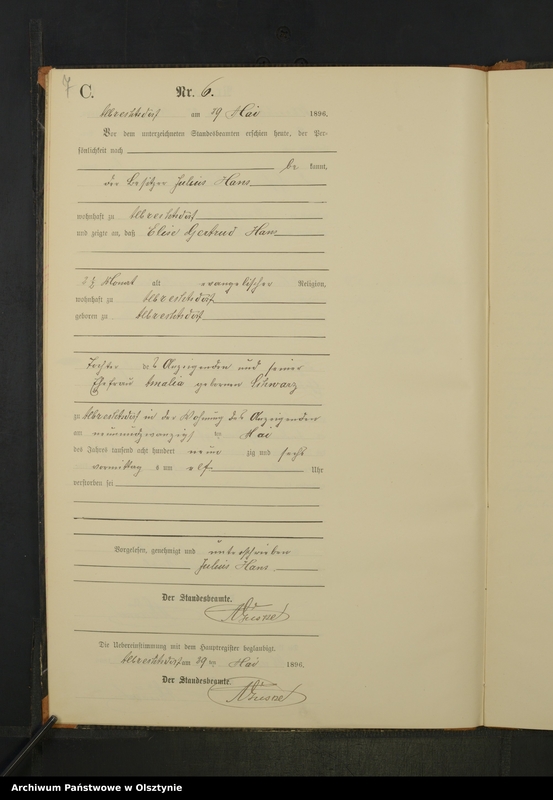 7
C.
Nr. 6.
Albrechtsdorf am 29 Mai 1896.
Vor dem unterzeichneten Standesbeamten erschien heute, der Per-
sönlichkeit nach
be kannt,
der Besitzer Julius Hans
wohnhaft zu Albrechtsdorf
und zeigte an, daß Elise Gertrud Hans
2½ Monat alt evangelischer Religion,
wohnhaft zu Albrechtsdorf
geboren zu Albrechtsdorf
Tochter des Anzeigenden und seiner
Ehefrau Amalie geborenen Schwarz
zu Albrechtsdorf in der Wohnung des Anzeigenden
am neunundzwanzigsten Mai
des Jahres tausend acht hundert neun zig und sechs
vormittag s um elf Uhr
verstorben sei
Vorgelesen, genehmigt und unterschrieben
Julius Hans
Der Standesbeamte.
Die Uebereinstimmung mit dem Hauptregister beglaubigt.
Albrechtsdorf am 29 ten Mai 1896.
Der Standesbeamte.
Archiwum Państwowe w Olsztynie